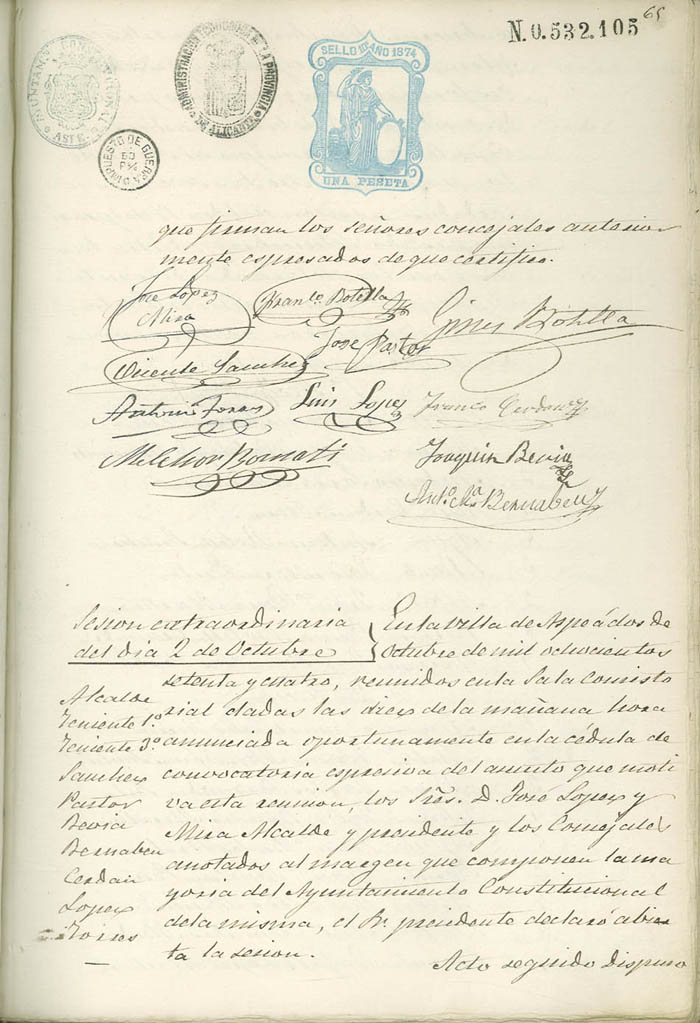 65
N.0.532.105
AYUNTAMIENTO CONSTITUCIONAL DE ASPE
ADMINISTRACION ECONOMICA DE LA PROVINCIA DE ALICANTE
IMPUESTO DE GUERRA
SELLO 11º AÑO 1874
UNA PESETA
que firman los señores concejales anterior
mente espresados de que certifico.
José Lopez
Mira
Franco. Botella
Gines Botella
Vicente Sanchez
Jose Pastor
Antonio Torres
Luis Lopez
Franco Cerdan
Melchor Bonati
Joaquin Bevia
Anto. Ma. Bernabeu
Sesion extraordinaria
del dia 2 de Octubre
En la villa de Aspe á dos de
Octubre de mil ochocientos
setenta y cuatro, reunidos en la Sala Consisto
rial dadas las diez de la mañana hora
anunciada oportunamente en la cédula de
convocatoria espresiva del asunto que moti
va esta reunion, los Sres. D. José Lopez y
Mira Alcalde y presidente y los Concejales
anotados al margen que componen la ma
yoria del Ayuntamiento Constitucional
de la misma, el Sr. presidente declaró abier
ta la sesion.
Alcalde
Teniente 1º
Teniente 3º
Sanchez
Pastor
Bevia
Bernabeu
Cerdan
Lopez
Torres
Acto seguido dispuso